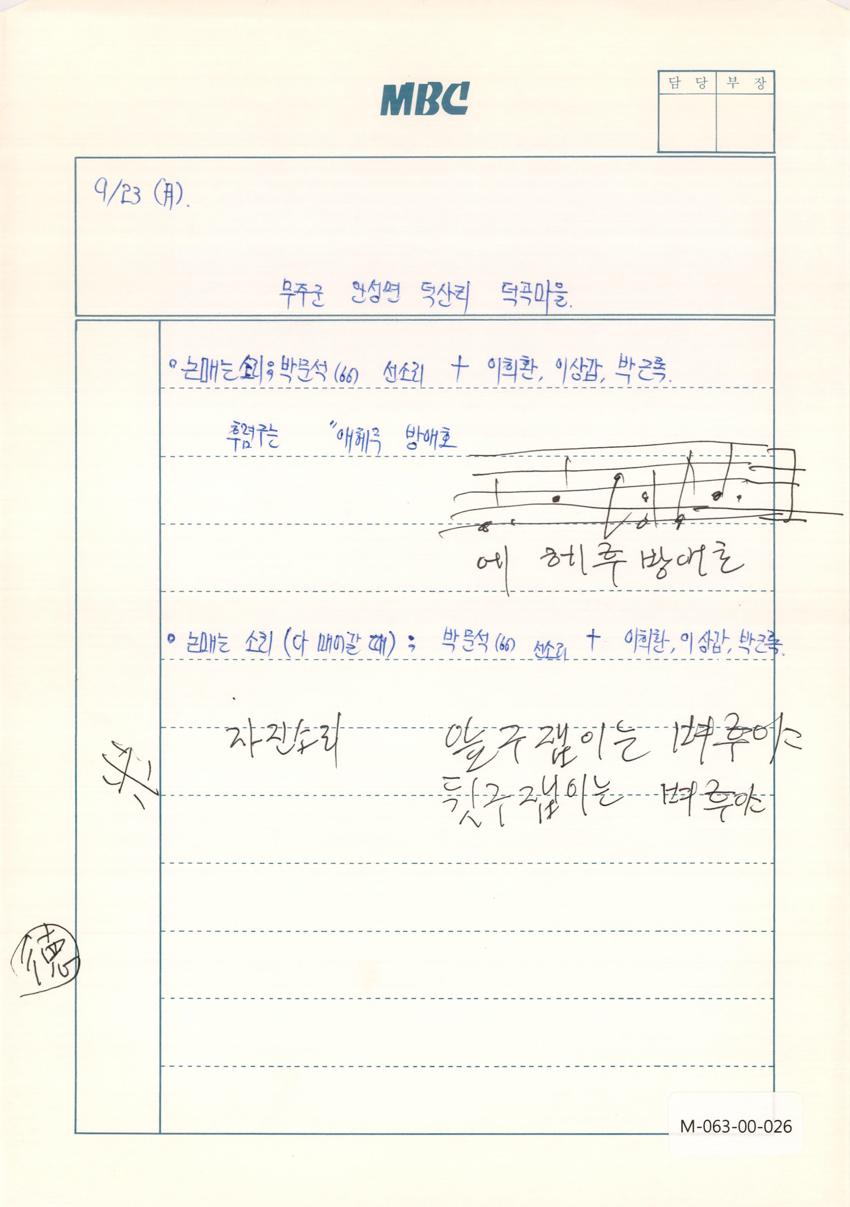 MBC
담 당 부 장
9/23 (月).
무주군 안성면 덕산리 덕곡마을.
논매는소리; 박문석(66) 선소리 + 이희환, 이상갑, 박근록.
후렴구는 "애헤루 방애호
에 헤루 방애호
논매는 소리 (다 매어갈 때); 박문석(66) 선소리 + 이희환, 이상갑, 박근록.
자진소리 앞구잽이는 벼루야
뒷구잽이는 벼루야
德
M-063-00-026